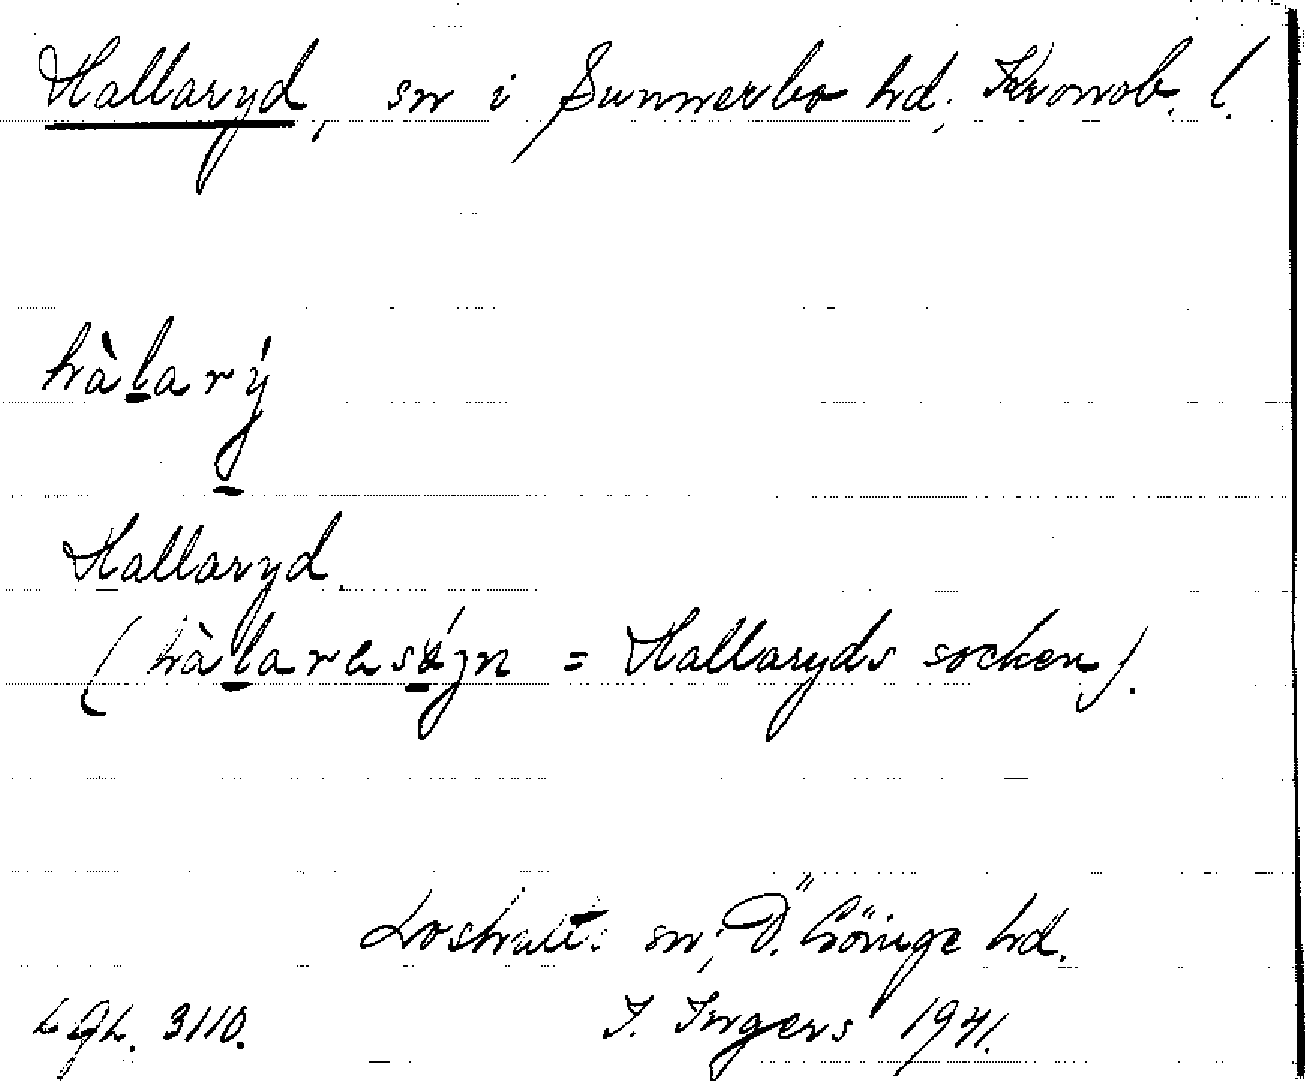 Hallaryd, sn i Sunnerbo hd, Kronob. l.
hàlarý
Hallaryd.
(hàlaresógn = Hallaryds socken).
Loshults sn, Ö. Göinge hd.
LGL. 3110. I. Ingers 1941.